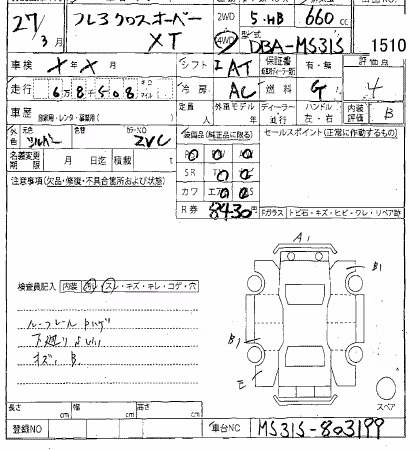 27年 3月
フレアクロスオーバー
XT
2WD
4WD
5・HB
660cc
型式
DBA-MS31S
1510
車検 × 年 × 月
シフト IAT
保証書 有・無
評価点
4
走行 68508
冷房 AC
燃料 G
車歴 自家用・レンタ・事業用 ( )
定員 人
外国モデル 年
ディーラー 並行
ハンドル 左・右
内装評価 B
外色
元色 シルバー
色替
カラーNO ZVC
装備品 (純正品に限る)
セールスポイント (正常に作動するもの)
名義変更期限 月 日迄
積載 t
SR
注意事項 (欠品・修復・不具合箇所および状態)
カワ エア AS
R券 8430円
Fガラス トビ石・キズ・ヒビ・ワレ・リペア跡
A1
検査員記入 内装 ヨゴレ・スレ・キズ・キレ・コゲ・穴
B1
ルーフレールハゲ
下廻りよい
キズ, B
B1
E
スペア
長さ cm
幅 cm
高さ cm
登録NO
車台NO MS31S-803199